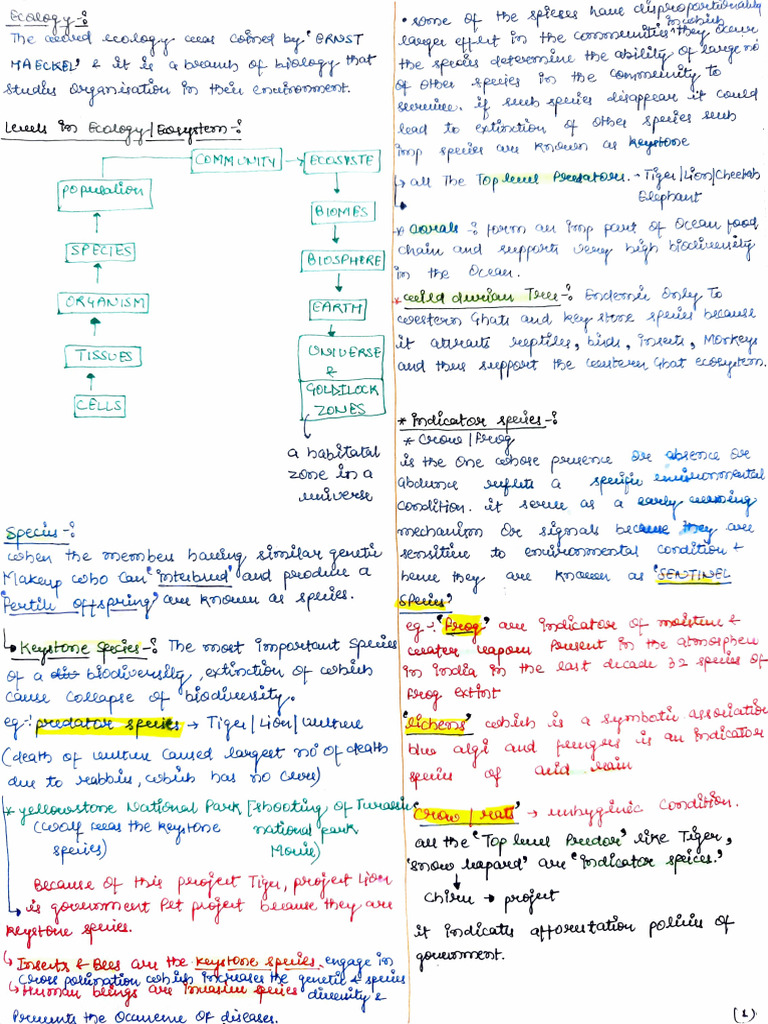 Ecology -:
The word ecology was coined by 'ERNST
HAECKEL' & it is a branch of biology that
studies Organisation in their environment.
Levels in Ecology/Ecosystem -:
COMMUNITY → ECOSYSTE
Population
BIOMES
SPECIES
BIOSPHERE
ORGANISM
EARTH
TISSUES
UNIVERSE
&
GOLDILOCK
ZONES
CELLS
a habitatal
zone in a
universe
Species -:
when the members having similar genetic
Makeup who can 'interbred' and produce a
'fertile offspring' are known as species.
Keystone Species -: The most important species
of a biodiversity, extinction of which
cause collapse of biodiversity.
eg -: predator species → Tiger/Lion/vulture
(death of vulture caused largest no of death
due to rabbis, which has no cures)
* yellowstone National Park [shooting of Turassic
(wolf was the keystone national park
species) Movie)
Because of this project Tiger, project Lion
is government Pet project because they are
keystone species.
↳ Insects & Bees are the keystone species. engage in
cross polination which increases the genetic & species
↳ Human beings are invasive species diversity &
Prevents the Occurence of diseases.
• some of the spieses have disproportionately
larger effect in the communities in which they occur
the species determine the ability of large no
of other species in the community to
survive. if such species disappear it could
lead to extinction of other species such
imp species are known as keystone
↳ all The Top level Predators. - Tiger/Lion/Cheetah
Elephant
* corals -: form an imp part of Ocean food
chain and supports very high biodiversity
in the Ocean.
* wild durian Tree -: Endemic Only to
western Ghats and key stone species because
it attracts reptiles, birds, insects, Monkeys
and thus support the western Ghat ecosystem.
* indicator species -:
* Crow/Frog
is the one whose presence or absence or
abdunce reflects a specific environmental
condition. it serve as a early warning
mechanism Or signals because they are
sensitive to environmental condition &
hence they are known as 'SENTINEL
Species'
eg -: 'Frog' are indicator of moisture &
water vapour Present in the atmosphere
in india in the last decade 32 species of
frog extint
'lichens' which is a symbotic association
blue algi and fungers is an indicator
species of acid rain
'Crow | rats' → unhyginic condition.
all the 'Top level Predor' like Tiger,
'snow lepard' are 'indicator speices.'
Chiru → project
it indicatis afforestation policies of
government.
(1)